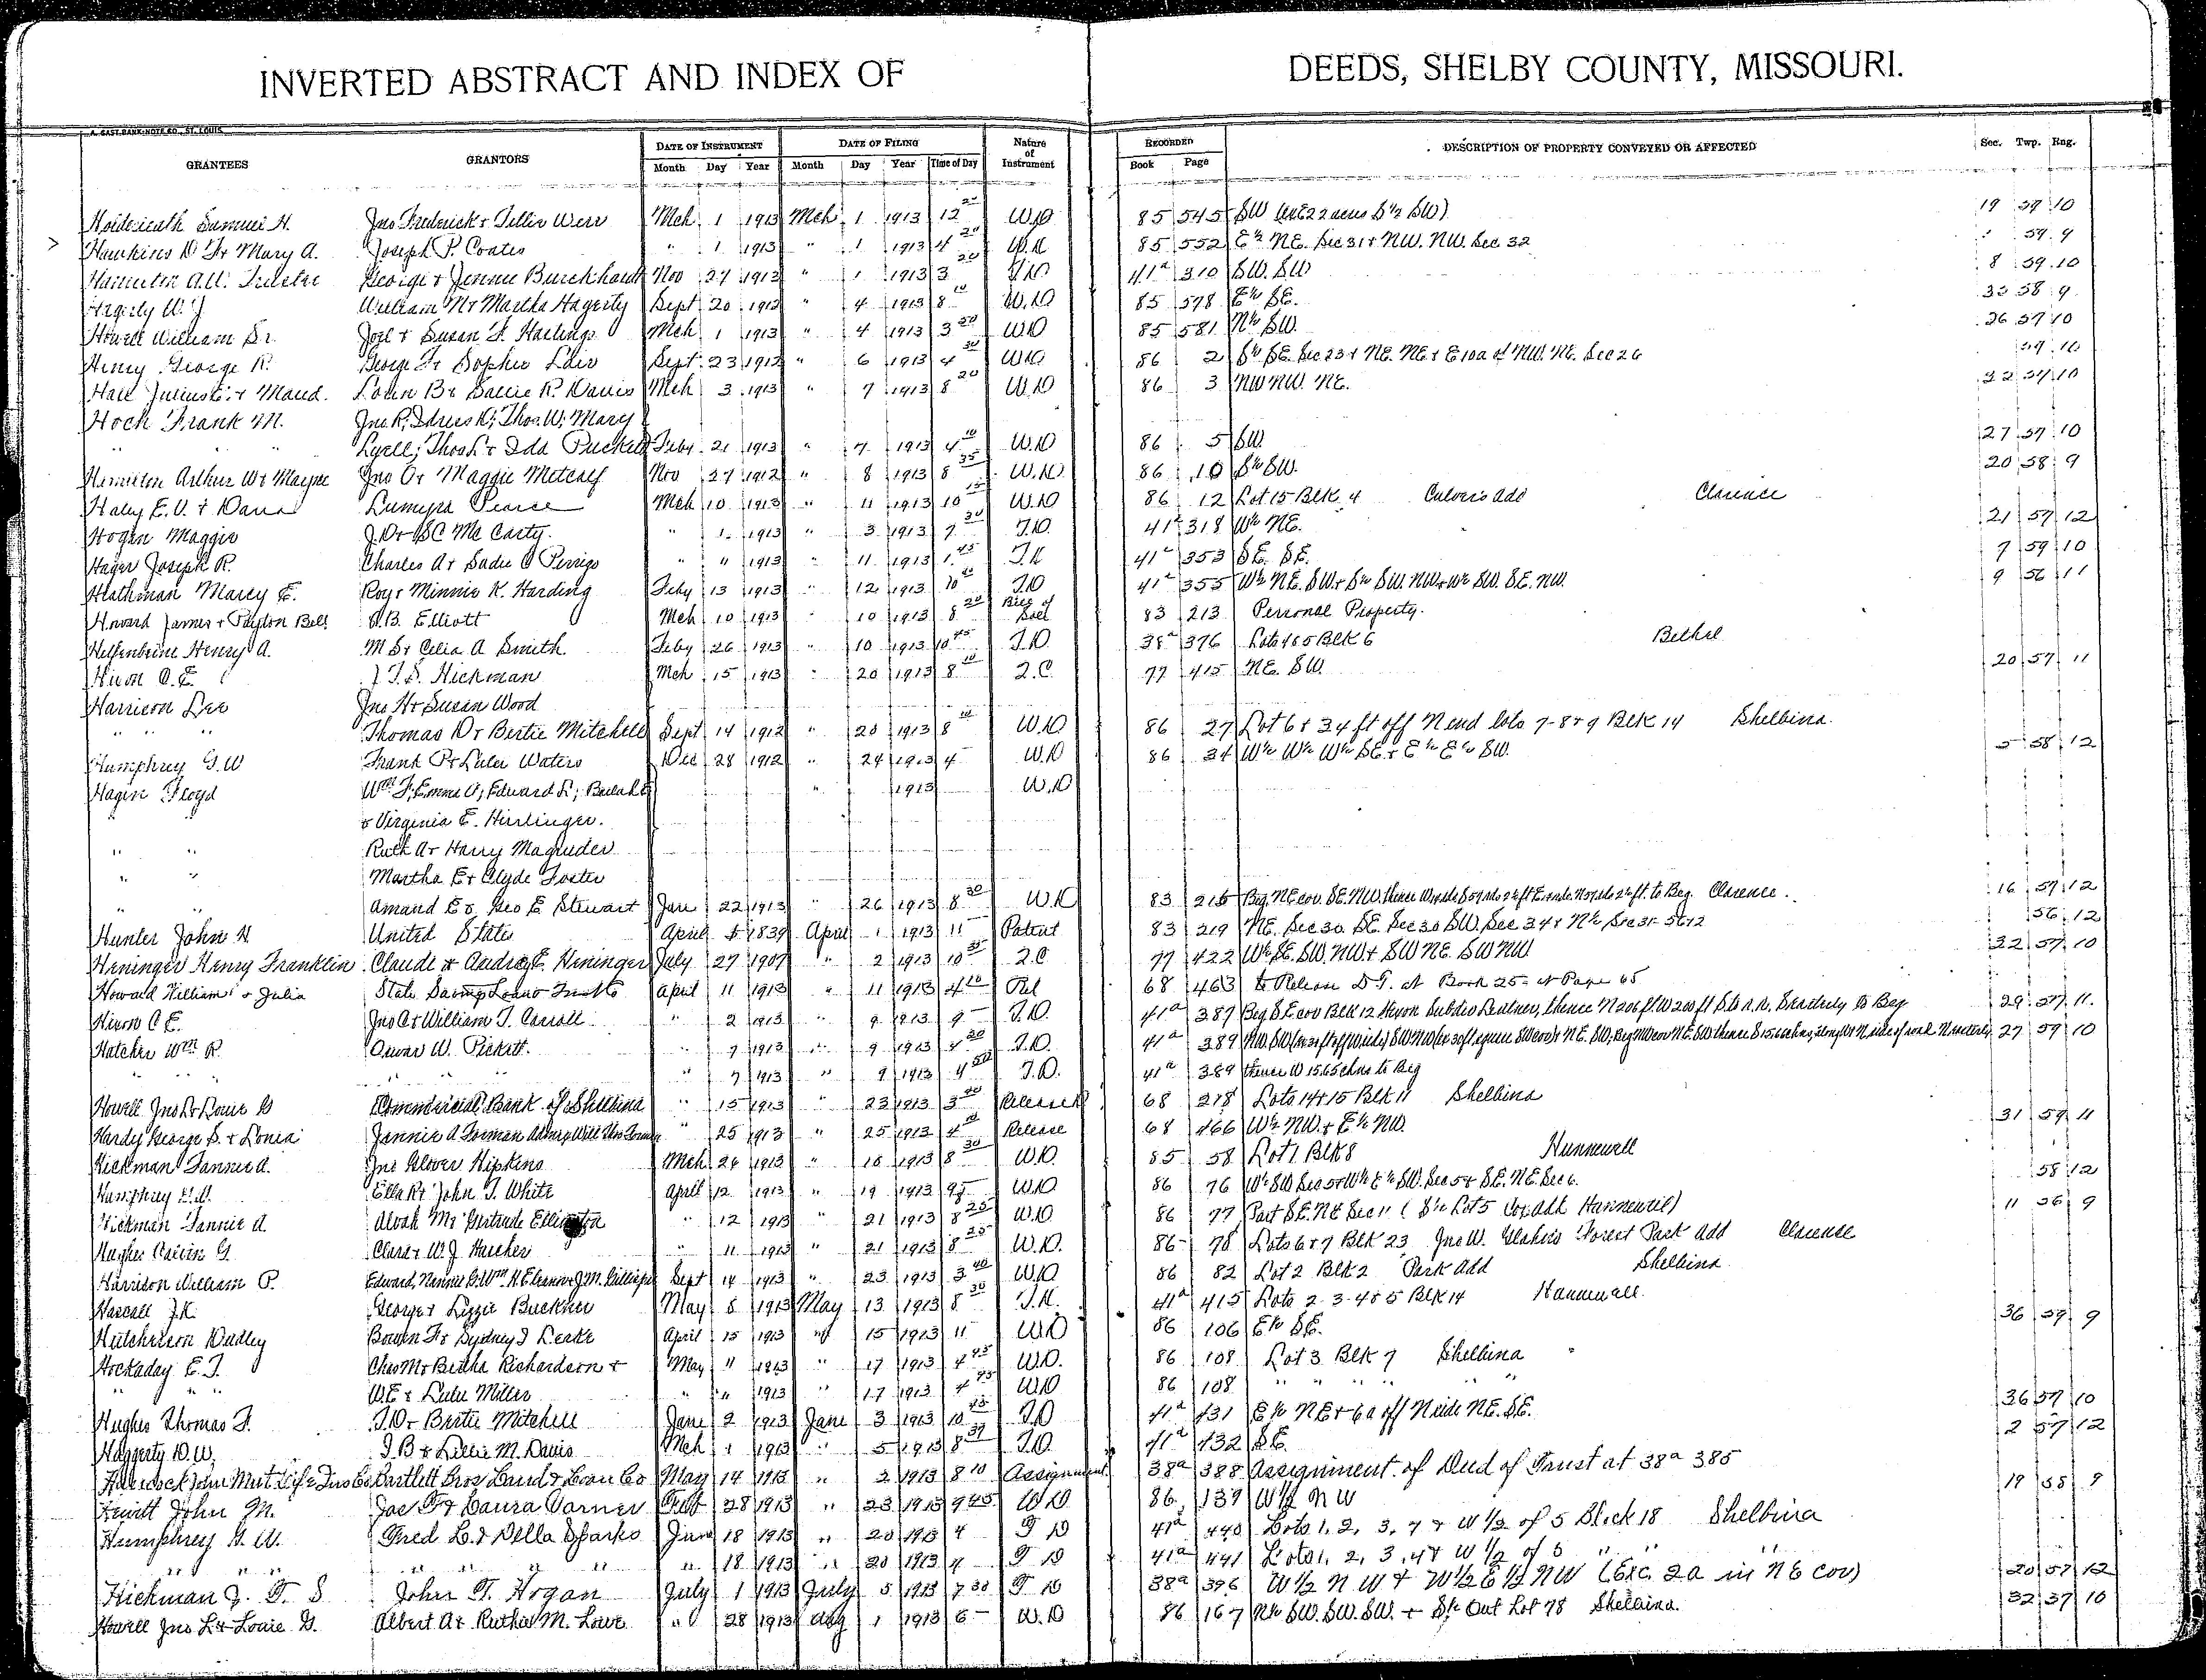 INVERTED ABSTRACT AND INDEX OF DEEDS, SHELBY COUNTY, MISSOURI.
GRANTEES GRANTORS DATE OF INSTRUMENT DATE OF FILING Nature of Instrument RECORDED DESCRIPTION OF PROPERTY CONVEYED OR AFFECTED Sec. Twp. Rng.
Month Day Year Month Day Year Time of Day Book Page
Samuel H. Jno Frederick & Tillie Werr Mch 1 1913 Mch 1 1913 12 W.D 85 545 SW 19 59 10
Hawkins D F & Mary A. Joseph P. Coates " 1 1913 " 1 1913 4 20 W.D 85 552 E½ NE. Sec 31 & NW. NW. Sec 32 59 9
A.W. Trustee George & Jennie Burckhardt Nov 27 1912 " 1 1913 3 20 T.D 41a 310 SW. SW 8 59 10
Hagerly W. J William M & Martha Hagerty Sept 20 1912 " 4 1913 8 10 W.D 85 578 E½ SE. 33 58 9
Howell William Sr. Joel & Susan F. Hastings Mch 1 1913 " 4 1913 3 50 W.D 85 581 N½ SW. 26 57 10
Henry George R. George F & Sophie Lair Sept 23 1912 " 6 1913 4 30 W.D 86 2 S½ SE. Sec 23 & NE. NE & E 10a of NW. NE. Sec 26 59 10
Hall Julius & Maud. Louin B & Sallie R. Davis Mch 3 1913 " 7 1913 8 20 W.D 86 3 NW NW. NE. 32 57 10
Hoch Frank M. Jno R; Idress D; Thos. W; Mary
" " Lyell; Thos L & Ida Puckett Feby 21 1913 " 7 1913 4 10 W.D 86 5 SW. 27 59 10
Hamilton Arthur W & Mayne Jno O & Maggie Metcalf Nov 27 1912 " 8 1913 8 35 W.D. 86 10 S½ SW. 20 58 9
Haley E. V. & Dana Pearce Mch 10 1913 " 11 1913 10 15 W.D 86 12 Lot 15 Blk 4 Culvers add Clarence
Hogan Maggie J. D & B C Mc Carty. " 1 1913 " 3 1913 7 30 T.D. 41a 318 W½ NE. 21 57 12
Hager Joseph R. Charles A & Sadie C Perrigo " " 1913 " 11 1913 1 45 T.D 41a 353 SE. SE. 7 59 10
Heathman Marcy E. Roy & Minnie K. Harding Feby 13 1913 " 12 1913 10 40 T.D 41a 355 W½ NE. SW & S½ SW. NW & W½ SW. SE. NW. 9 56 11
Howard James & Payton Bell B. Elliott Mch 10 1913 " 10 1913 8 20 Bill of Sale 83 213 Personal Property.
Helfenbein Henry A. M S & Celia A Smith Feby 26 1913 " 10 1913 10 45 T.D 38a 376 Lots 4 & 5 Blk 6 Bethel
Hixon C. E. J. F. S. Hickman Mch 15 1913 " 20 1913 8 10 Q.C 77 415 NE. SW. 20 57 11
Harrison Lee Jno H & Susan Wood
" " Thomas D & Bertie Mitchell Sept 14 1912 " 20 1913 8 10 W.D 86 27 Lot 6 & 34 ft off N end lots 7-8 & 9 Blk 14 Shelbina.
Humphrey G. W Frank P & Lulu Waters Dec 28 1912 " 24 1913 4 W.D 86 34 W½ W½ W½ SE & E½ E½ SW. 5 58 12
Hagin Floyd Wm F; Emma V; Edward L; Beulah E " 1913 W.D
& Virginia E. Hirlinger.
" " Ruth A & Harry Magruder
" " Martha E & Clyde Foster
" " Amand E & Geo E Stewart Jan 22 1913 " 26 1913 8 30 W.D 83 215 Beg. NE cor. SE. NW. thence W to Beg. Clarence. 16 57 12
Hunter John H United States April 5 1839 April 1 1913 11 Patent 83 219 NE. Sec 30. SE. Sec 30 SW. Sec 34 & N½ Sec 31-56-12 56 12
Heninger Henry Franklin Claude & Audrey E. Heninger July 27 1907 " 2 1913 10 35 Q.C 77 422 W½ SE. SW. NW. & SW NE. SW NW 32 57 10
Howard William & Julia State Savings Loan & Trust Co April 11 1913 " 11 1913 4 10 Rel 68 463 to Release D.T. at Book 25 at Page 65
Hixon C E. Jno C & William T. Carroll " 2 1913 " 9 1913 9 T.D. 41a 387 Beg SE cor Blk 12 subdiv Lentner, thence N 206 ft W 200 ft S to R.R. to Beg 29 57 11
Hatcher Wm R. Oscar W. Pickett. " 7 1913 " 9 1913 4 30 T.D. 41a 389 27 59 10
" " " 7 1913 " 9 1913 4 50 T.D. 41a 389 thence W 15.65 chns to Beg
Howell Jno L & Louie G Commercial Bank of Shelbina " 15 1913 " 23 1913 3 Release 68 278 Lots 14 & 15 Blk 11 Shelbina
Hardy George S. & Lonia Jannie A Forman " 25 1913 " 25 1913 4 Release 68 466 W½ NW. & E½ NW. 31 59 11
Hickman Fannie A. Jno Glover Hipkins Mch 24 1913 " 16 1913 8 30 W.D. 85 58 Lot 1 Blk 8 Hunnewell
Humphrey G. W. Ella R & John T. White April 12 1913 " 19 1913 W.D. 86 76 W½ SW Sec 5 & W½ E½ SW. Sec 5 & SE. NE Sec 6. 58 12
Hickman Fannie A. Alvah M & Gertrude Ellington " 12 1913 " 21 1913 8 25 W.D. 86 77 Part SE. NE Sec 11 (S½ Lot 5 Cox add Hunnewell) 11 56 9
Hughes Calvin G Clara & W. J. Hatcher " 11 1913 " 21 1913 8 25 W.D. 86 78 Lots 6 & 7 Blk 23 Jno W. Forest Park add Clarence
Harrison William P. Edward, Nannie Sept 14 1913 " 23 1913 3 40 W.D 86 82 Lot 2 Blk 2 Park add Shelbina
Hascall J. K. George & Lizzie Buckner May 8 1913 May 13 1913 8 30 T.D. 41a 415 Lots 2-3-4 & 5 Blk 14 Hunnewell.
Hutchinson Dudley Bowen F & Sydney J Leake April 15 1913 " 15 1913 11 W.D 86 106 E½ SE. 36 59 9
Hockaday E. T. Chas M & Bertha Richardson & May " 1913 " 17 1913 4 45 W.D. 86 108 Lot 3 Blk 7 Shelbina
" " " W. E & Lulu Miller " " 1913 " 17 1913 4 45 W.D 86 108 " " " " "
Hughes Thomas F. T. D & Bertie Mitchell June 2 1913 June 3 1913 10 45 T.D 41a 431 E½ NE & 6a off N side NE. SE. 36 57 10
Haggerty D. W. J. B & Lillie M. Davis Mch 1 1913 " 5 1913 8 37 T.D. 41a 432 SE. 2 57 12
Hancock John Mut Life Ins Co Bartlett Bros Land & Loan Co May 14 1913 " 2 1913 8 10 Assignment. 38a 388 Assignment of Deed of Trust at 38a 385
Hewitt John M. Jas F & Laura Varner Feb 28 1913 " 23 1913 9 45 W D 86 139 W½ N W 19 58 9
Humphrey G. W. Fred L. & Della Sparks June 18 1913 " 20 1913 4 T D 41a 440 Lots 1, 2, 3, 7 & W ½ of 5 Block 18 Shelbina
" " " " " " " " 18 1913 " 20 1913 4 T D 41a 441 Lots 1, 2, 3, 4 & W ½ of 5 " "
Hickman J. F. S John T. Hogan July 1 1913 July 5 1913 7 30 T D 38a 396 W ½ N W & W½ E ½ NW (Exc. 2a in NE cor) 20 57 12
Howell Jno L & Louie G. Albert A & Ruthie M. Lowe " 28 1913 Aug 1 1913 6 W.D 86 167 N½ SW. SW. SW. & S½ Out Lot 78 Shelbina. 32 57 10